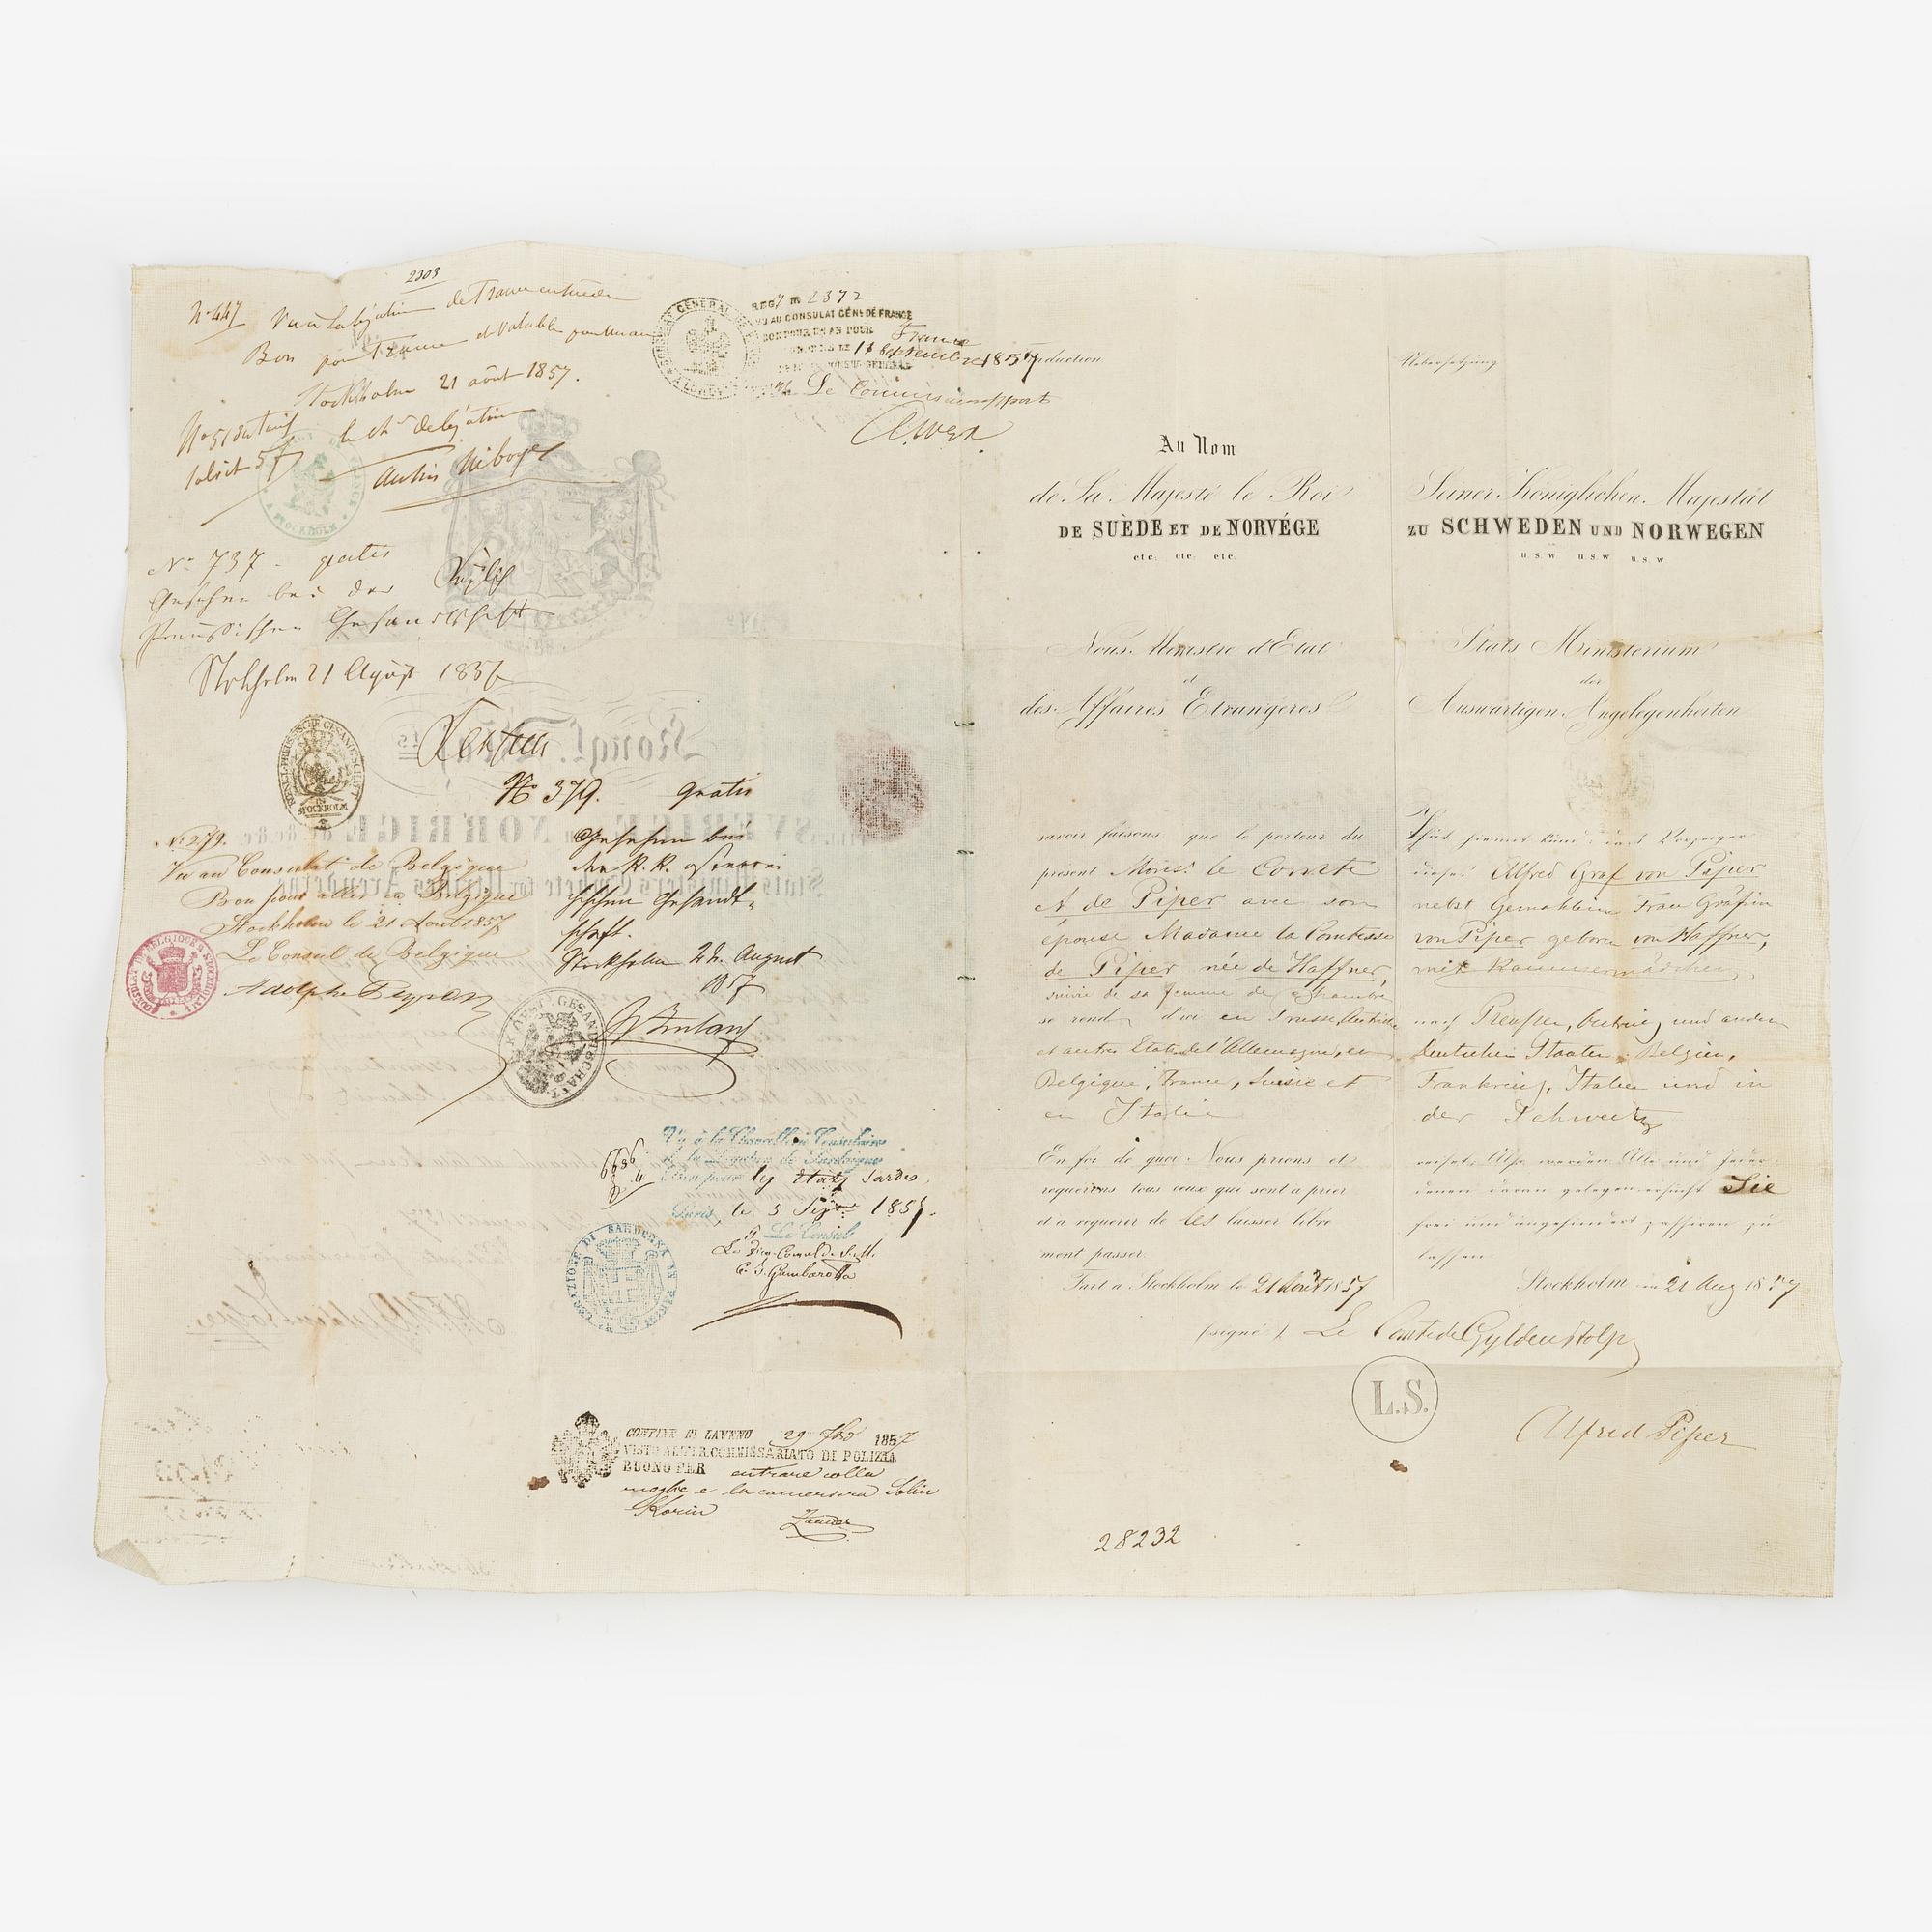 2303
No 447 Vu à la légation de France
Bon pour France et Valable pour un an
Stockholm 21 août 1857.
le ch de légation
A STOCKHOLM
CONSULAT GÉNÉRAL DE
A LONDRES
REG 2372
VU AU CONSULAT GÉNL DE FRANCE
BON POUR UN AN POUR France
LONDRES LE 11 Septembre 1857
No 737 gratis
Gesehen bei der Kgl
Preussischen Gesandtschaft
Stockholm 21 August 1857
GESANDTSCHAFT
IN
STOCKHOLM
No 279.
Vu au Consulat de Belgique
Bon pour aller en Belgique
Stockholm le 21 Août 1857
Le Consul de Belgique
Adolphe
CONSULAT DE BELGIQUE A STOCKHOLM
No 379. gratis
Gesehen bei
der K. K. Österrei
chischen Gesandt-
schaft.
Stockholm 22. August
1857
K. K. OEST. GESANDTSCHAFT
6696
4
Vu à la Chancellerie Consulaire
de la Légation de Sardaigne
Bon pour les États Sardes
Paris, le 5 1857.
Le Consul
C. B. Gambarotta
LEGAZIONE DI SARDEGNA IN PARIGI
CONFINE DI LAVENO 29 7bre 1857
VISTO ALL'I.R. COMMISSARIATO DI POLIZIA
BUONO PER entrare colla
moglie e la cameriera
Karin
Traduction
Au Nom
de Sa Majesté le Roi
DE SUÈDE ET DE NORVÉGE
etc. etc. etc.
Nous Ministre d'Etat
et
des Affaires Etrangères
savoir faisons que le porteur du
présent Monsr. le Comte
A de Piper avec son
épouse Madame la Comtesse
de Piper née de Haffner,
suivie de sa femme de chambre
se rendent d'ici en Prusse, Autriche
et autres Etats de l'Allemagne, en
Belgique, France, Suisse et
en Italie
En foi de quoi Nous prions et
requérons tous ceux qui sont à prier
et a requérir de les laisser libre
ment passer.
Fait a Stockholm le 21 Août 1857
Uebersetzung
Seiner Königlichen Majestät
ZU SCHWEDEN UND NORWEGEN
u.s.w u.s.w u.s.w
Stats Ministerium
der
Auswärtigen Angelegenheiten
Thut hiemit kund: dass Vorzeiger
dieses Alfred Graf von Piper
nebst Gemahlin Frau Gräfin
von Piper geboren von Haffner,
mit Kammermädchen,
nach Preussen, Oestreich und andern
deutschen Staaten, Belgien,
Frankreich, Italien und in
der Schweitz
reiset; Also werden Alle und Jeder
denen daran gelegen ersucht Sie
frei und ungehindert passiren zu
lassen
Stockholm den 21 Aug 1857
(signé) Le Comte de Gyldenstolpe
L.S.
Alfred Piper
28232